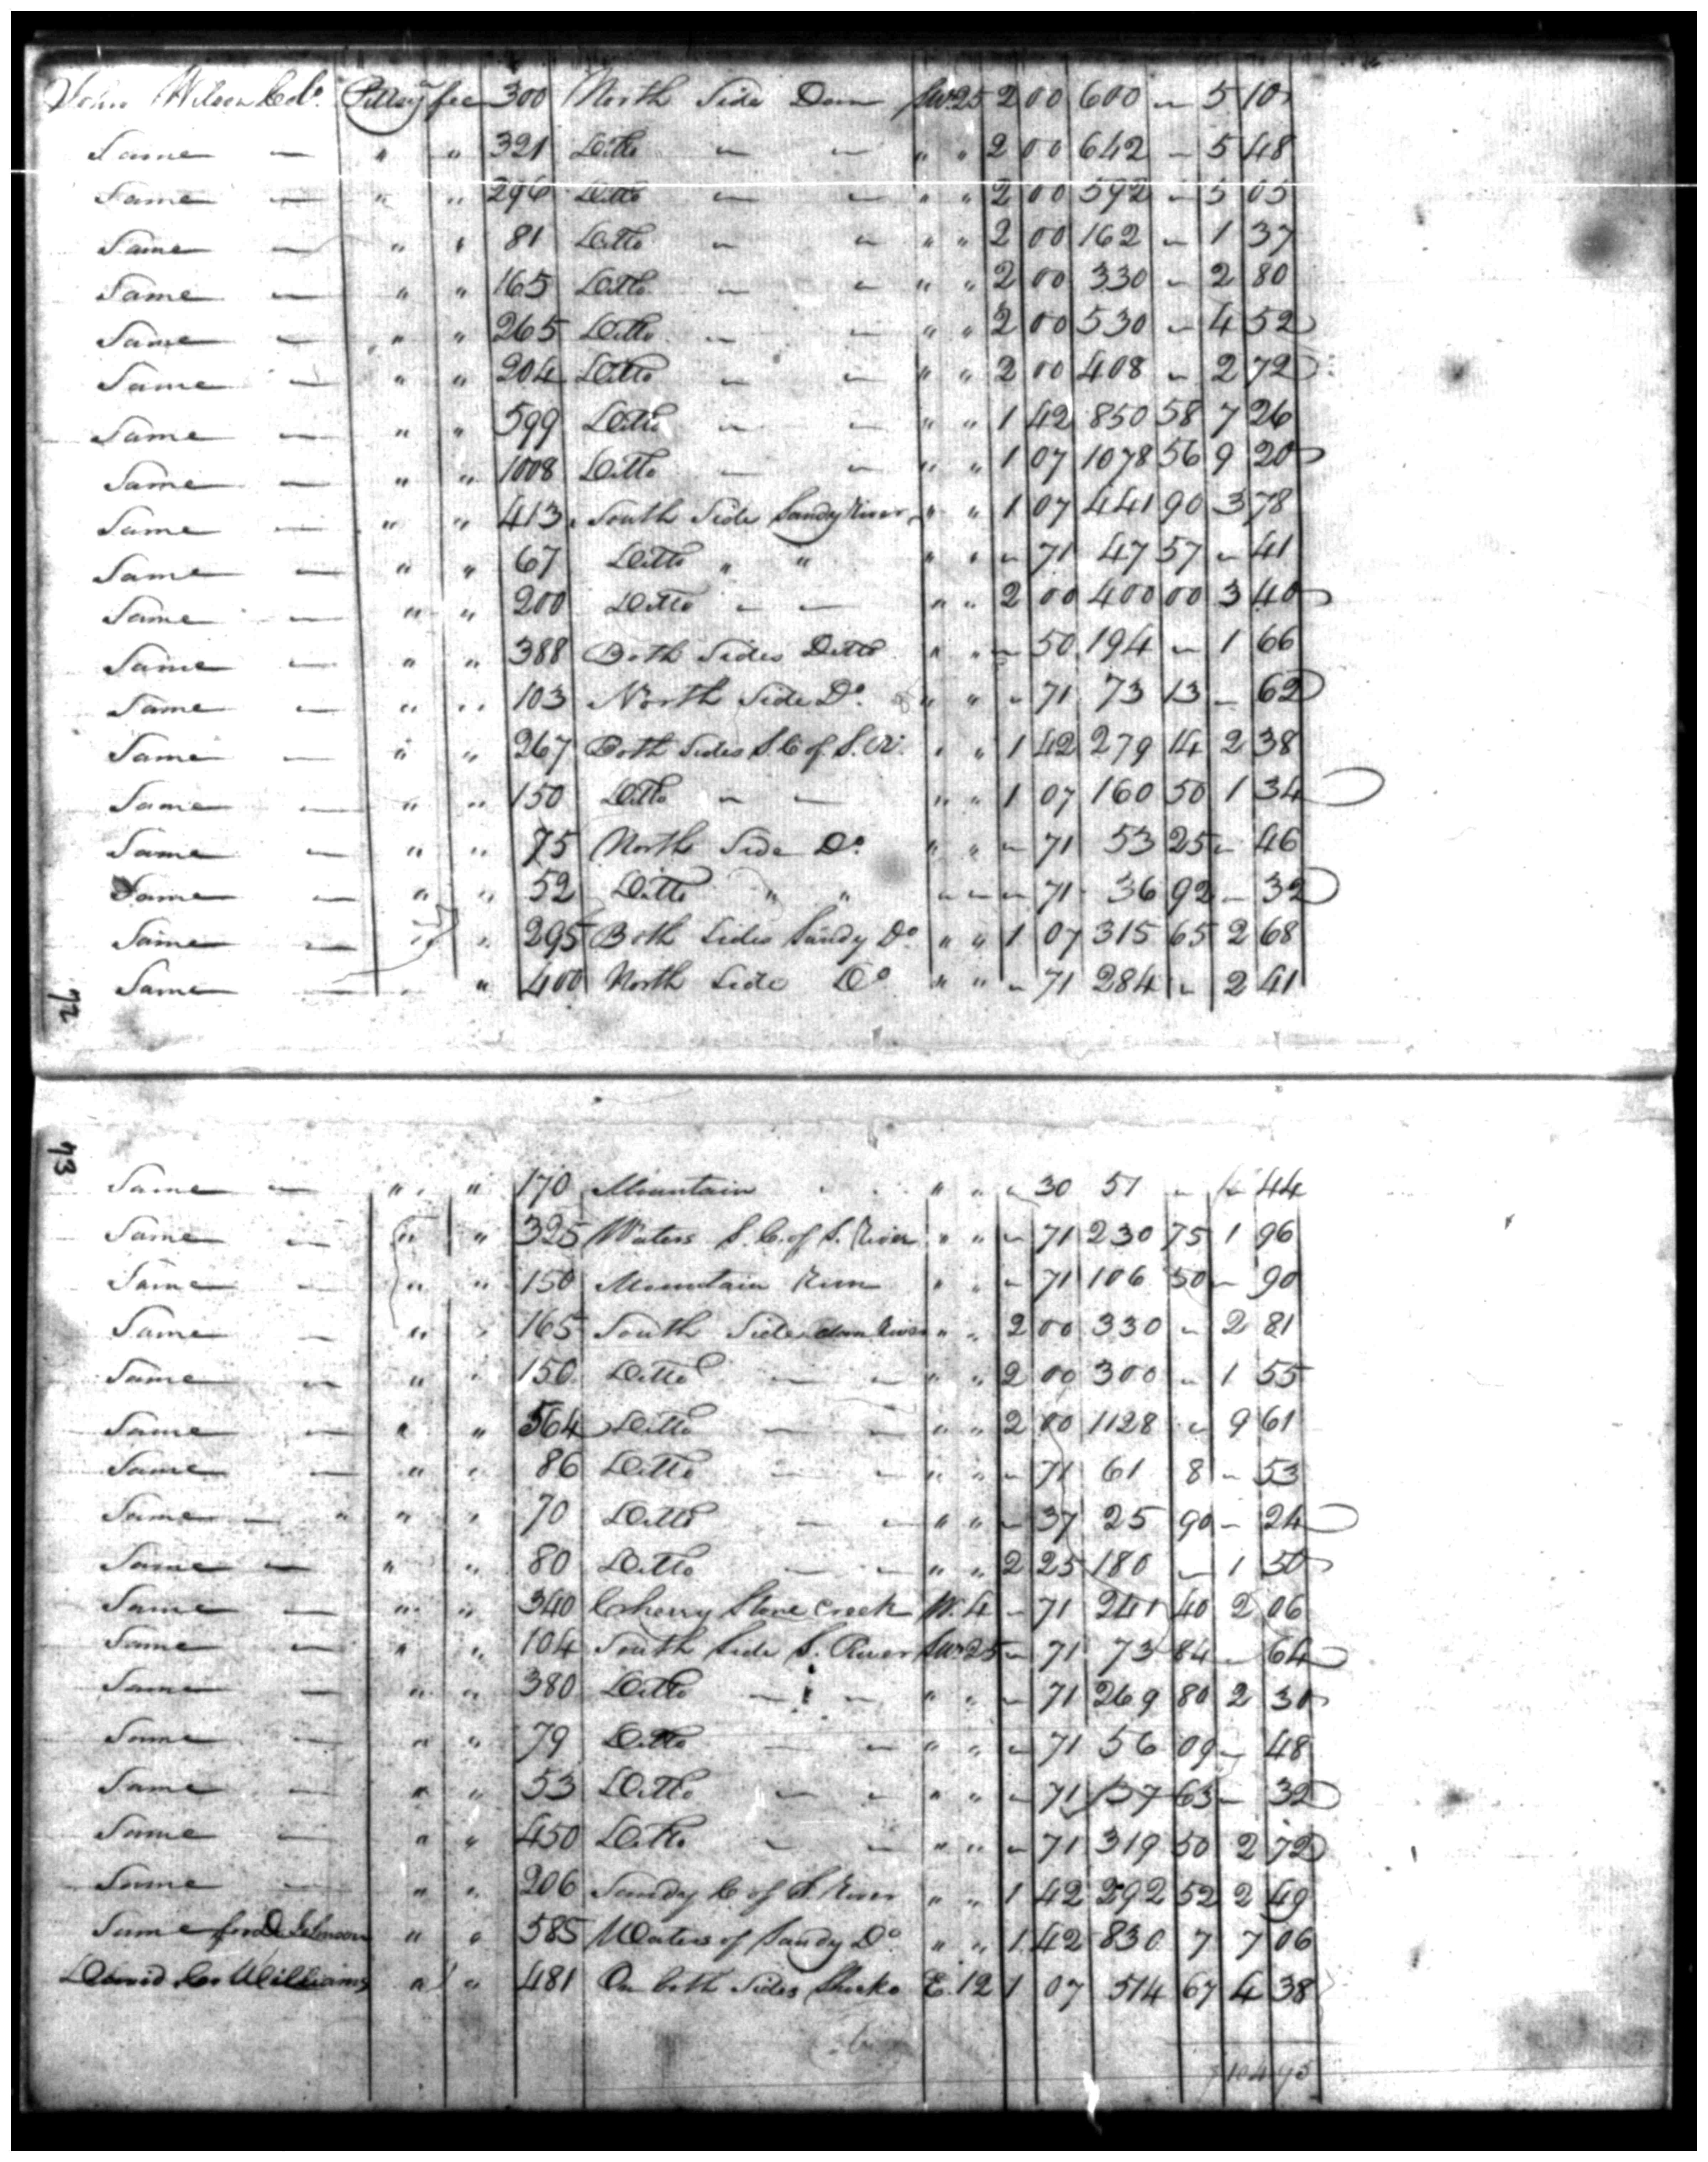 John Wilson Colo. Pittsy fee 300 North Side Dan SW 25 2 00 600 — 5 10
Same — " " 321 Ditto — — " " 2 00 642 — 5 48
Same — " " 296 Ditto — — " " 2 00 592 — 5 05
Same — " " 81 Ditto — — " " 2 00 162 — 1 37
Same — " " 165 Ditto — — " " 2 00 330 — 2 80
Same — " " 265 Ditto — — " " 2 00 530 — 4 52
Same — " " 204 Ditto — — " " 2 00 408 — 2 72
Same — " " 599 Ditto — — " " 1 42 850 58 7 26
Same — " " 1008 Ditto — — " " 1 07 1078 56 9 20
Same — " " 413 South Side Sandy River " " 1 07 441 90 3 78
Same — " " 67 Ditto " " " " — 71 47 57 — 41
Same — " " 200 Ditto — — " " 2 00 400 00 3 40
Same — " " 388 Both Sides Ditto " " — 50 194 — 1 66
Same — " " 103 North Side Do. " " — 71 73 13 — 62
Same — " " 267 Both Sides S. C of S. Ri. " " 1 42 279 14 2 38
Same — " " 150 Ditto — — " " 1 07 160 50 1 34
Same — " " 75 North Side Do. " " — 71 53 25 — 46
Same — " " 52 Ditto " " — — — 71 36 92 — 32
Same — " " 295 Both Sides Sandy Do " " 1 07 315 65 2 68
Same — " 400 North Side Do " " — 71 284 — 2 41
72
73
Same — " " 170 Mountain " " — 30 51 — — 44
Same — " " 325 Waters S. C. of S. River " " — 71 230 75 1 96
Same — " " 150 Mountain Run " " — 71 106 50 — 90
Same — " " 165 South Side dan River " " 2 00 330 — 2 81
Same — " " 150 Ditto — — " " 2 00 300 — 1 55
Same — " " 564 Ditto — — " " 2 00 1128 — 9 61
Same — " " 86 Ditto — — " " — 71 61 8 — 53
Same — " " " 70 Ditto — — " " — 37 25 90 — 24
Same — " " 80 Ditto — — " " 2 25 180 — 1 50
Same — " " 340 Cherry Stone Creek W. 4 — 71 241 40 2 06
Same — " " 104 South Side S. River SW 25 — 71 73 84 — 64
Same — " " 380 Ditto — — " " — 71 269 80 2 30
Same — " " 79 Ditto — — " " — 71 56 09 — 48
Same — " " 53 Ditto — — " " — 71 37 63 — 32
Same — " " 450 Ditto — — " " — 71 319 50 2 72
Same — " " 206 Sandy C of S. River " " 1 42 292 52 2 49
Same for D Johnson " " 585 Waters of Sandy Do " " 1 42 830 7 7 06
David Co Williams " " 481 On both Sides Shocko E. 12 1 07 514 67 4 38
104 95